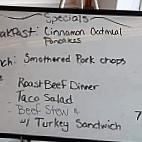 Specials
akfast: Cinnamon Oatmeal
Pancakes
nch: Smothered Pork chops
Roast Beef Dinner
Taco Salad
- Beef Stew &
w/ Turkey Sandwich
7